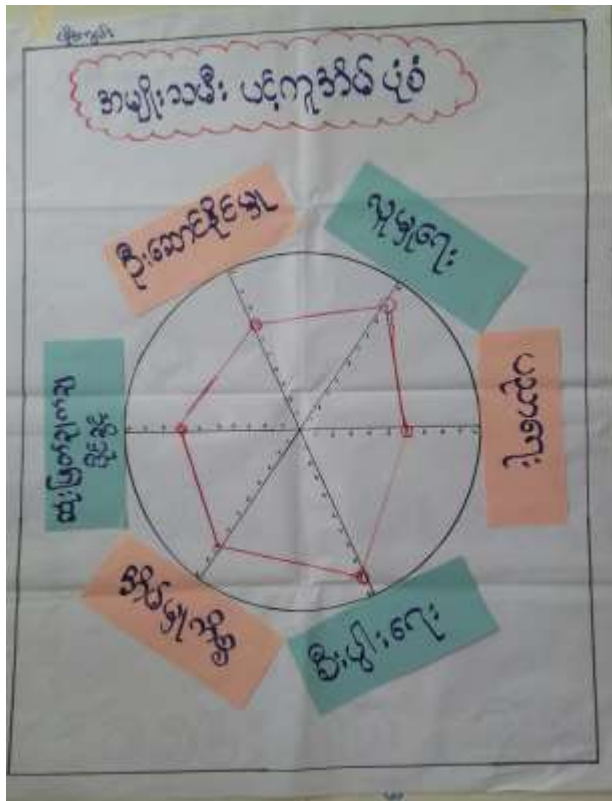 အမျိုးသမီး ပင့်ကူအိမ် ပုံစံ
ဦးဆောင်နိုင်မှု
လူမှုရေး
ပညာရေး
စီးပွါးရေး
အိမ်မှုကိစ္စ
ဆုံးဖြတ်ချက်ချ
နိုင်ခွင့်